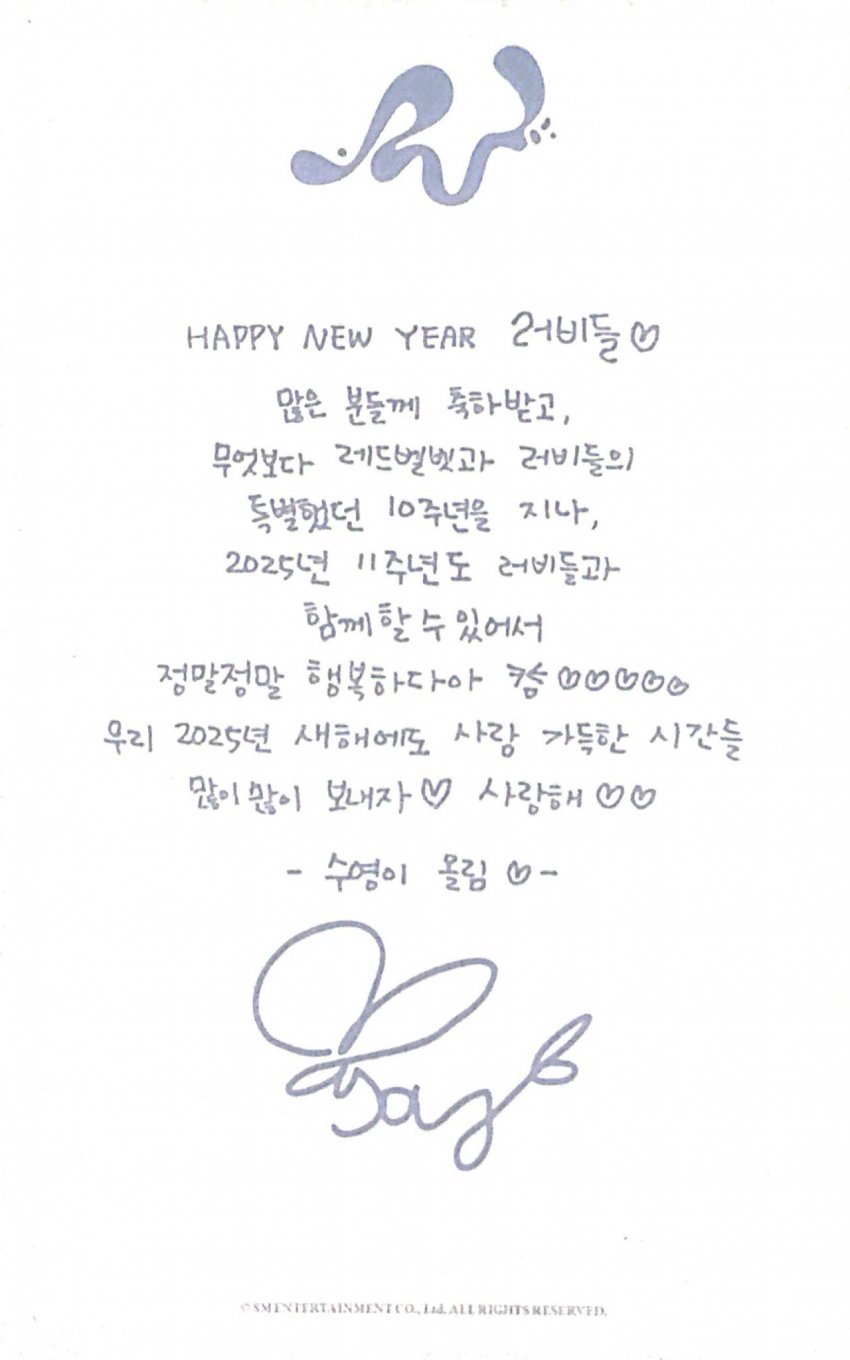 HAPPY NEW YEAR 러비들♡
많은 분들께 축하받고,
무엇보다 레드벨벳과 러비들의
특별했던 10주년을 지나,
2025년 11주년도 러비들과
함께할 수 있어서
정말정말 행복하다아 캬 ♡♡♡♡♡
우리 2025년 새해에도 사랑 가득한 시간들
많이많이 보내자♡ 사랑해♡♡
- 수영이 올림 ♡-
Joy
© SM ENTERTAINMENT CO., Ltd. ALL RIGHTS RESERVED.